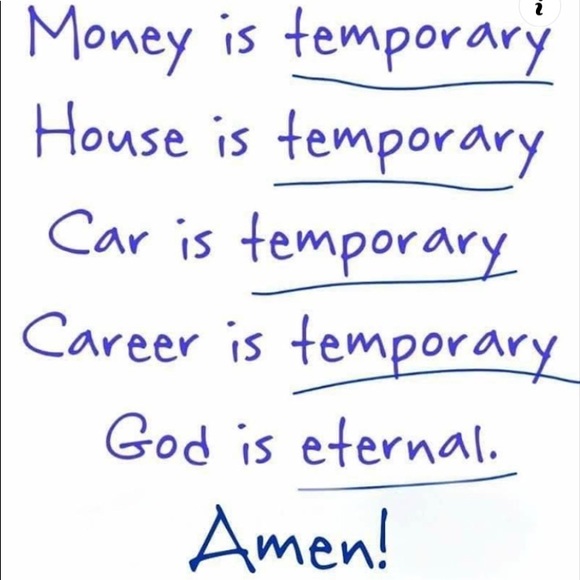 Money is temporary
House is temporary
Car is temporary
Career is temporary
God is eternal.
Amen!